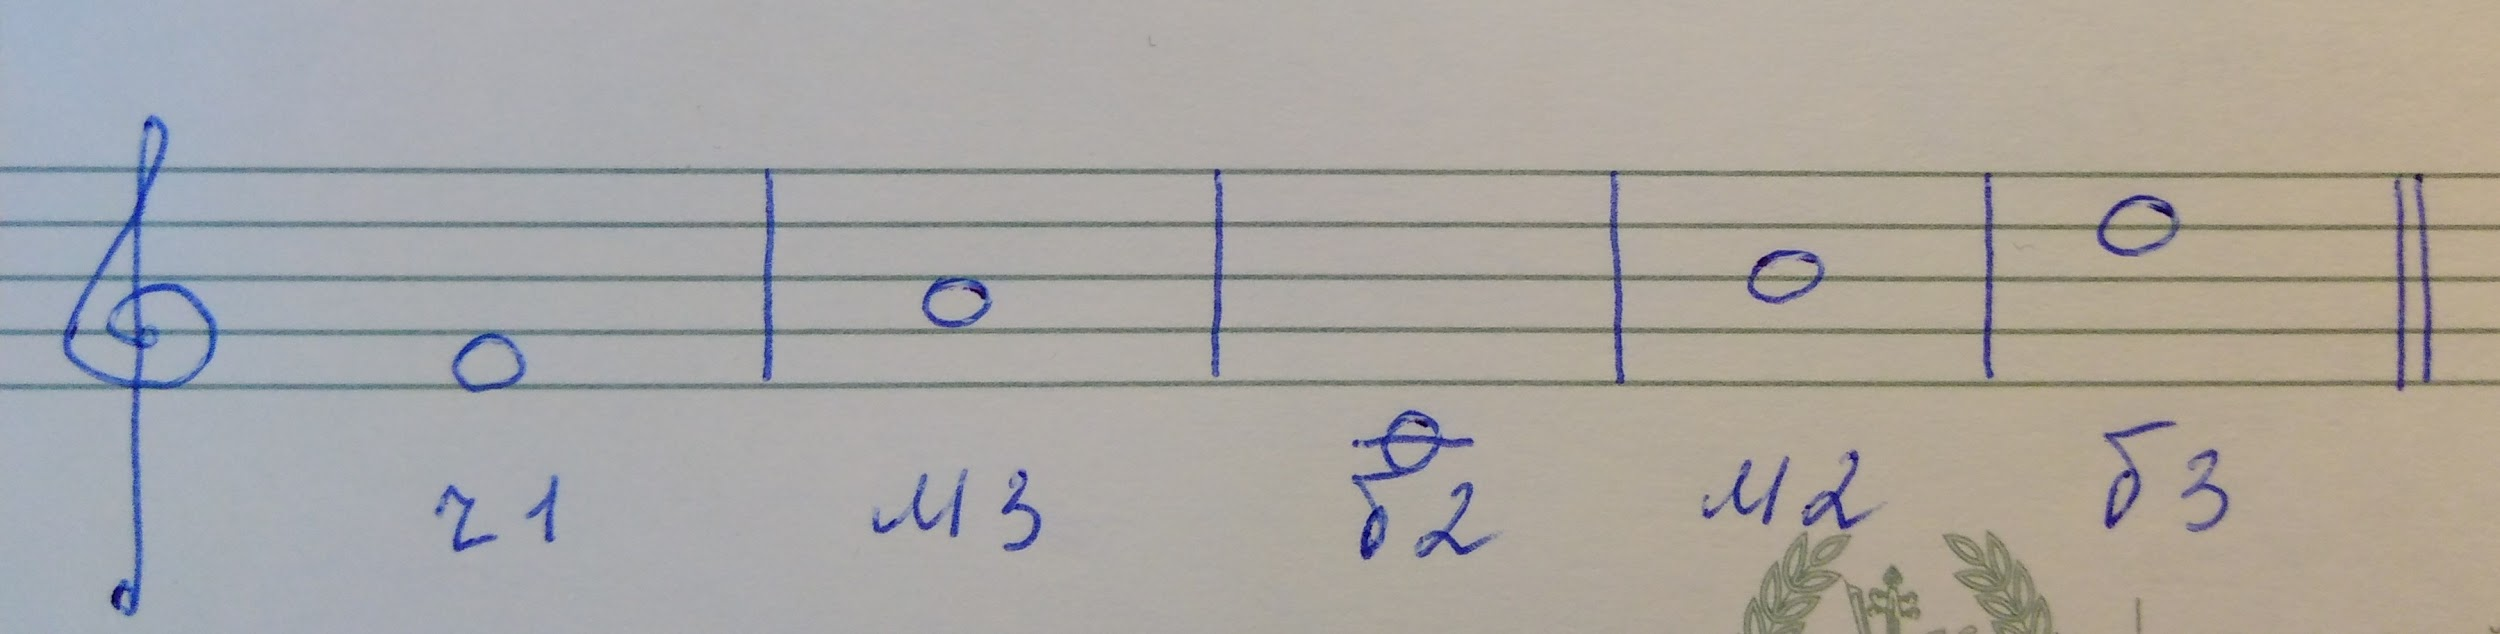 ч1 м3 б2 м2 б3